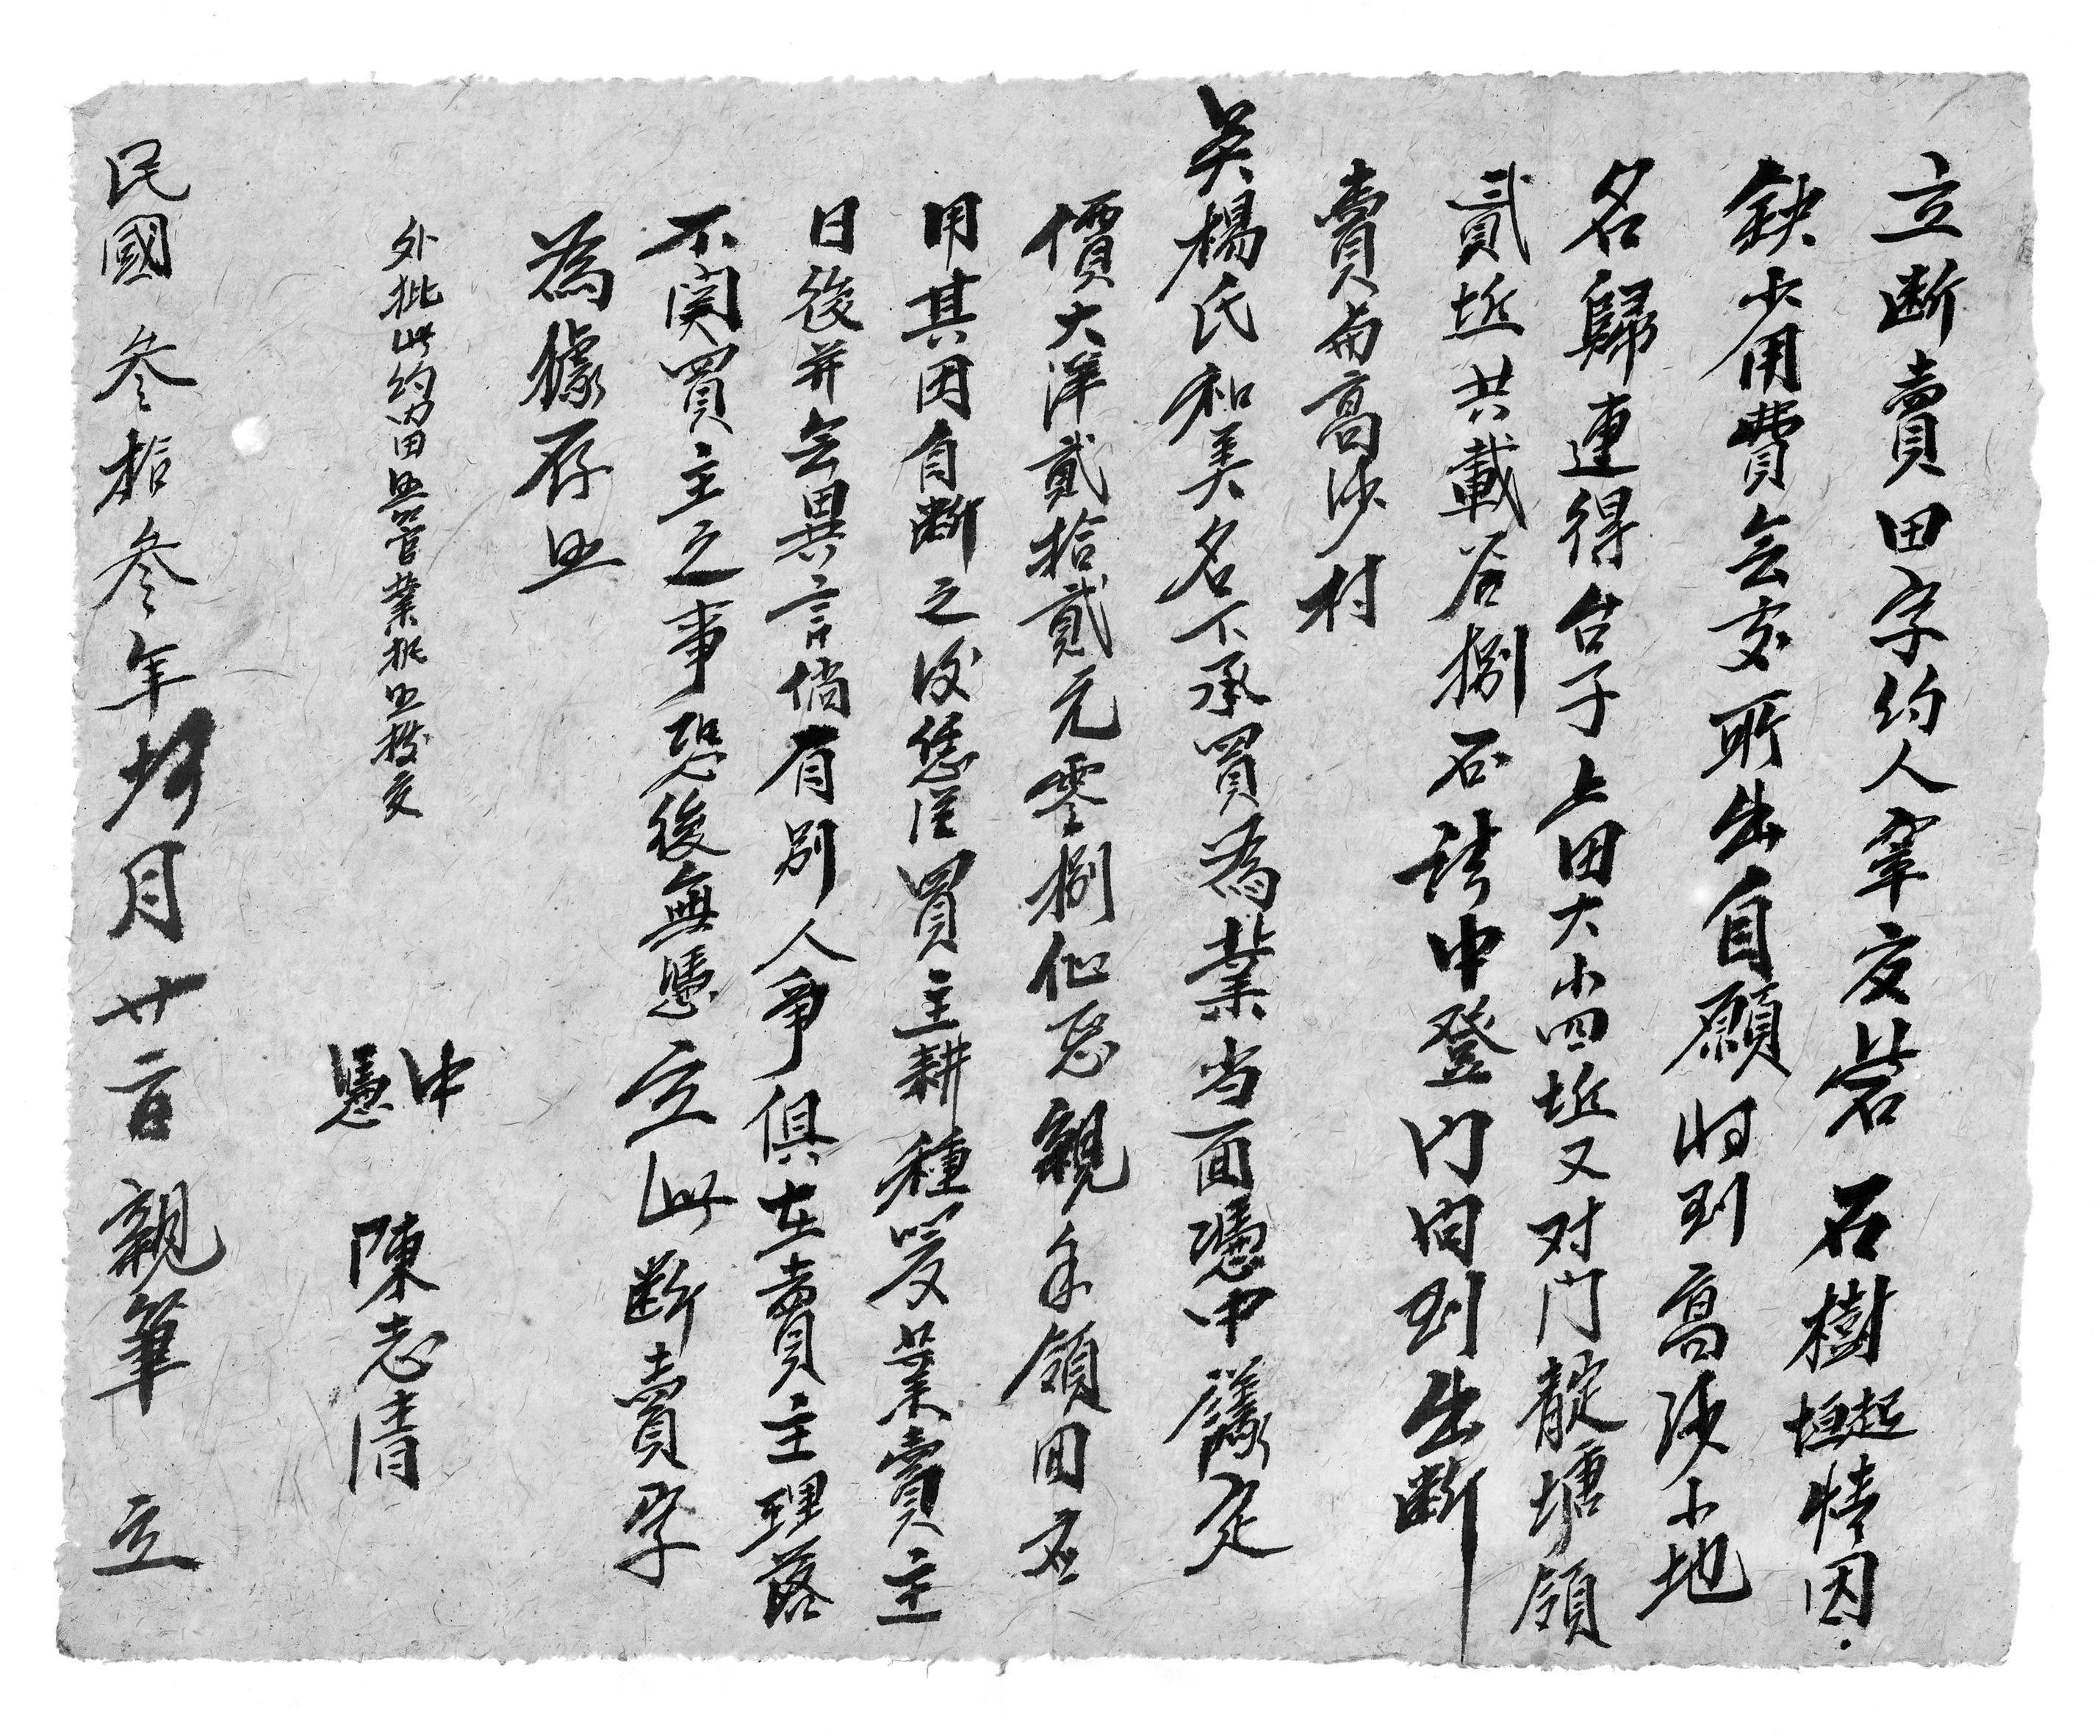 立断賣田字約人宰友岩石樹起垣情因
缺少用費无家所出自願将到高沙小地
名歸連得台子上田大小四坵又对门靛塘領
貳坵共載谷捌石請中登门问到出断
賣与高沙村
吴楊氏和美名下承買為業当面憑中議定
價大洋貳拾貳元零捌仙恶親手領囬应
用其田自断之後恁從買主耕種管業賣主
日後并无異言倘有别人争俱在賣主理落
不関買主之事恐後無憑立此断賣字
為據存照
外批此約内田照管業批照投交
憑中 陳志清
民國叁拾叁年 月廿二日親筆 立